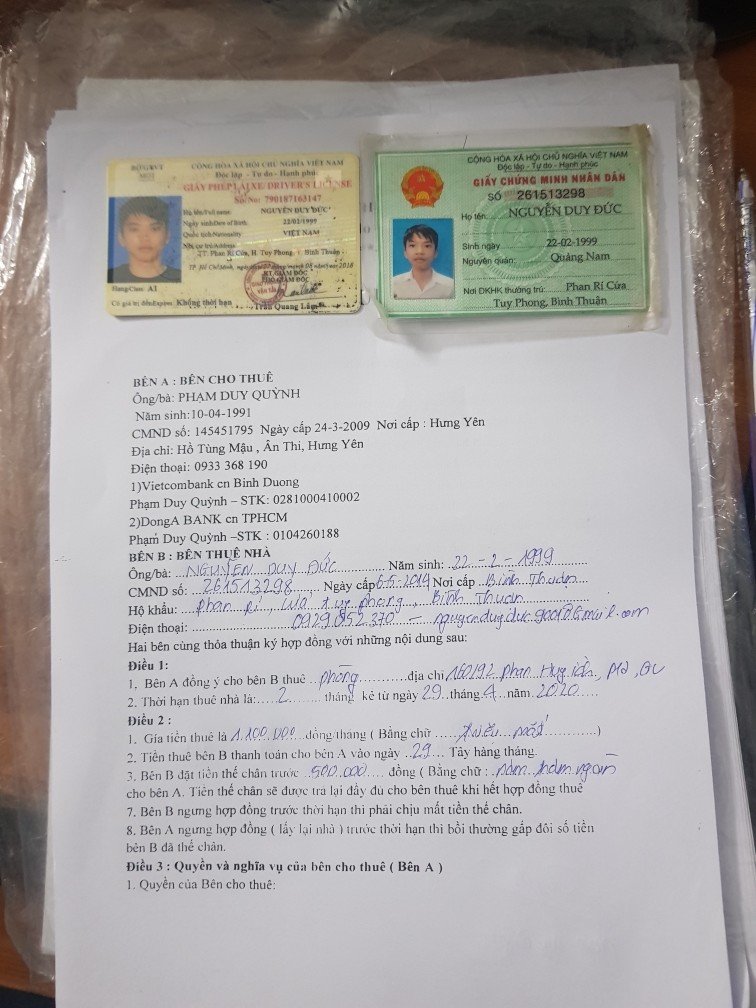 CỘNG HÒA XÃ HỘI CHỦ NGHĨA VIỆT NAM
Độc lập - Tự do - Hạnh phúc
GIẤY PHÉP LÁI XE/DRIVER'S LICENSE
Số/No: 790187163147
Họ tên/Full name: NGUYỄN DUY ĐỨC
Ngày sinh/Date of Birth: 22/02/1999
Quốc tịch/Nationality: VIỆT NAM
TT. Phan Rí Cửa, H. Tuy Phong, Bình Thuận
2018
Hạng/Class: A1
Có giá trị đến/Expires: Không thời hạn
Trần Quang Lâm
CỘNG HÒA XÃ HỘI CHỦ NGHĨA VIỆT NAM
Độc lập - Tự do - Hạnh phúc
GIẤY CHỨNG MINH NHÂN DÂN
SỐ 261513298
Họ tên: NGUYỄN DUY ĐỨC
Sinh ngày 22-02-1999
Nguyên quán: Quảng Nam
Nơi ĐKHK thường trú: Phan Rí Cửa
Tuy Phong, Bình Thuận
BÊN A : BÊN CHO THUÊ
Ông/bà: PHẠM DUY QUỲNH
Năm sinh:10-04-1991
CMND số: 145451795 Ngày cấp 24-3-2009 Nơi cấp : Hưng Yên
Địa chỉ: Hồ Tùng Mậu , Ân Thi, Hưng Yên
Điện thoại: 0933 368 190
1)Vietcombank cn Binh Duong
Phạm Duy Quỳnh – STK: 0281000410002
2)DongA BANK cn TPHCM
Phạm Duy Quỳnh –STK : 0104260188
BÊN B : BÊN THUÊ NHÀ
Ông/bà: NGUYỄN DUY ĐỨC Năm sinh: 22-2-1999
CMND số: 261513298 Ngày cấp 6-5-2014 Nơi cấp Bình Thuận
Hộ khẩu: Phan Rí, Tuy Phong, Bình Thuan
Điện thoại: 0929052370 –
Hai bên cùng thỏa thuận ký hợp đồng với những nội dung sau:
Điều 1:
1. Bên A đồng ý cho bên B thuê phòng địa chỉ Phan Huy Ích
2. Thời hạn thuê nhà là: 2 tháng kể từ ngày 29 tháng 4 năm 2020
Điều 2 :
1. Gía tiền thuê là 1.100.000 đồng/tháng ( Bằng chữ )
2. Tiền thuê bên B thanh toán cho bên A vào ngày 29 Tây hàng tháng.
3. Bên B đặt tiền thế chân trước 500.000 đồng ( Bằng chữ : năm trăm ngàn
cho bên A. Tiền thế chân sẽ được trả lại đầy đủ cho bên thuê khi hết hợp đồng thuê
7. Bên B ngưng hợp đồng trước thời hạn thì phải chịu mất tiền thế chân.
8. Bên A ngưng hợp đồng ( lấy lại nhà ) trước thời hạn thì bồi thường gấp đôi số tiền
bên B đã thế chân.
Điều 3 : Quyền và nghĩa vụ của bên cho thuê ( Bên A )
1. Quyền của Bên cho thuê: